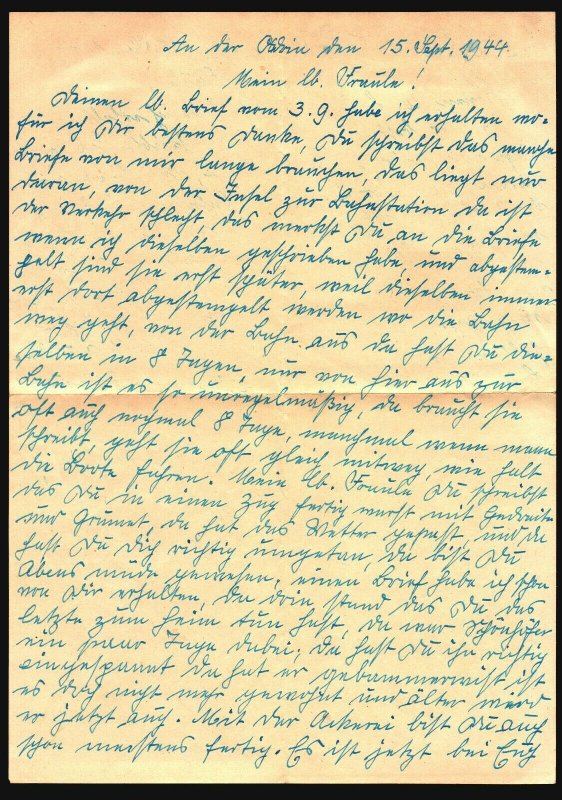 An der Adria den 15. Sept. 1944.
Mein lb. Fraule!
Deinen lb. Brief vom 3.9. habe ich erhalten wo-
für ich Dir bestens danke, Du schreibst das manche
Briefe von mir lange brauchen, das liegt nur
daran, von der Insel zur Bahnstation da ist
der Verkehr schlecht, das merkst Du an die Briefe
wenn ich dieselben geschrieben habe, und abgestem-
pelt sind sie erst später, weil dieselben immer
erst dort abgestempelt werden wo die Bahn
weg geht, von der Bahn aus da hast Du die-
selben in 8 Tagen, nur von hier aus zur
Bahn ist es so unregelmäßig, da braucht sie
oft auch nochmal 8 Tage, manchmal wenn mann
schreibt, geht sie oft gleich mitweg, wie halt
die Boote fahren. Mein lb. Fraule Du schreibst
das Du in einen Zug fertig warst mit
und Grumet, da hat das Wetter gepast, und da
hast Du dich richtig umgetan, da bist Du
Abens müde gewesen, einen Brief habe ich schon
von Dir erhalten, da drin stand das Du das
letzte zum heim tun hast, da war
ein paar Tage dabei, da hast Du ihn richtig
eingespannt da hat er ist
es doch nicht mehr gewohnt und älter wird
er jetzt auch. Mit der Ackerei bist Du auch
schon meistens fertig. Es ist jetzt bei Euch